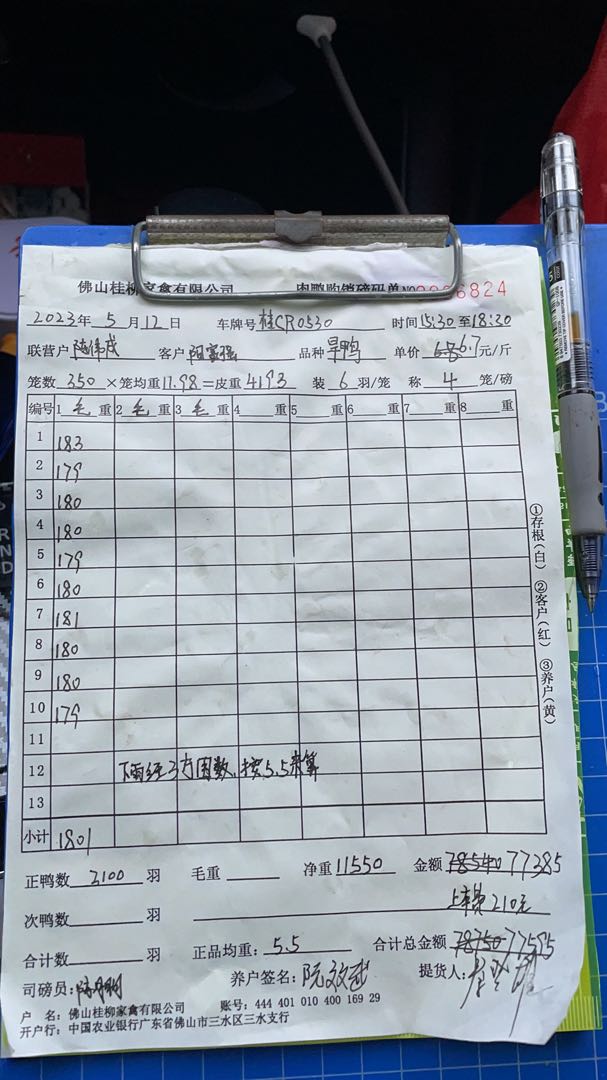 佛山桂柳家禽有限公司 肉鸭购销磅码单 NO 6824
2023年5月12日 车牌号 桂CR0530 时间15:30至18:30
联营户 客户 品种 旱鸭 单价 6.7元/斤
笼数 350 ×笼均重11.98=皮重4193 装 6 羽/笼 称 4 笼/磅
编号 1 毛 重 2 毛 重 3 毛 重 4 重 5 重 6 重 7 重 8 重
1 183
2 179
3 180
4 180
5 179
6 180
7 181
8 180
9 180
10 179
11
12 下雨经三方因数,按5.5来算
13
小计 1801
①存根(白) ②客户(红) ③养户(黄)
正鸭数 2100 羽 毛重 净重 11550 金额 78540 77385
次鸭数 羽 上车费210元
合计数 羽 正品均重: 5.5 合计总金额 78750 77595
司磅员: 养户签名: 阮文武 提货人:
户 名: 佛山桂柳家禽有限公司 账号: 444 401 010 400 169 29
开户行: 中国农业银行广东省佛山市三水区三水支行